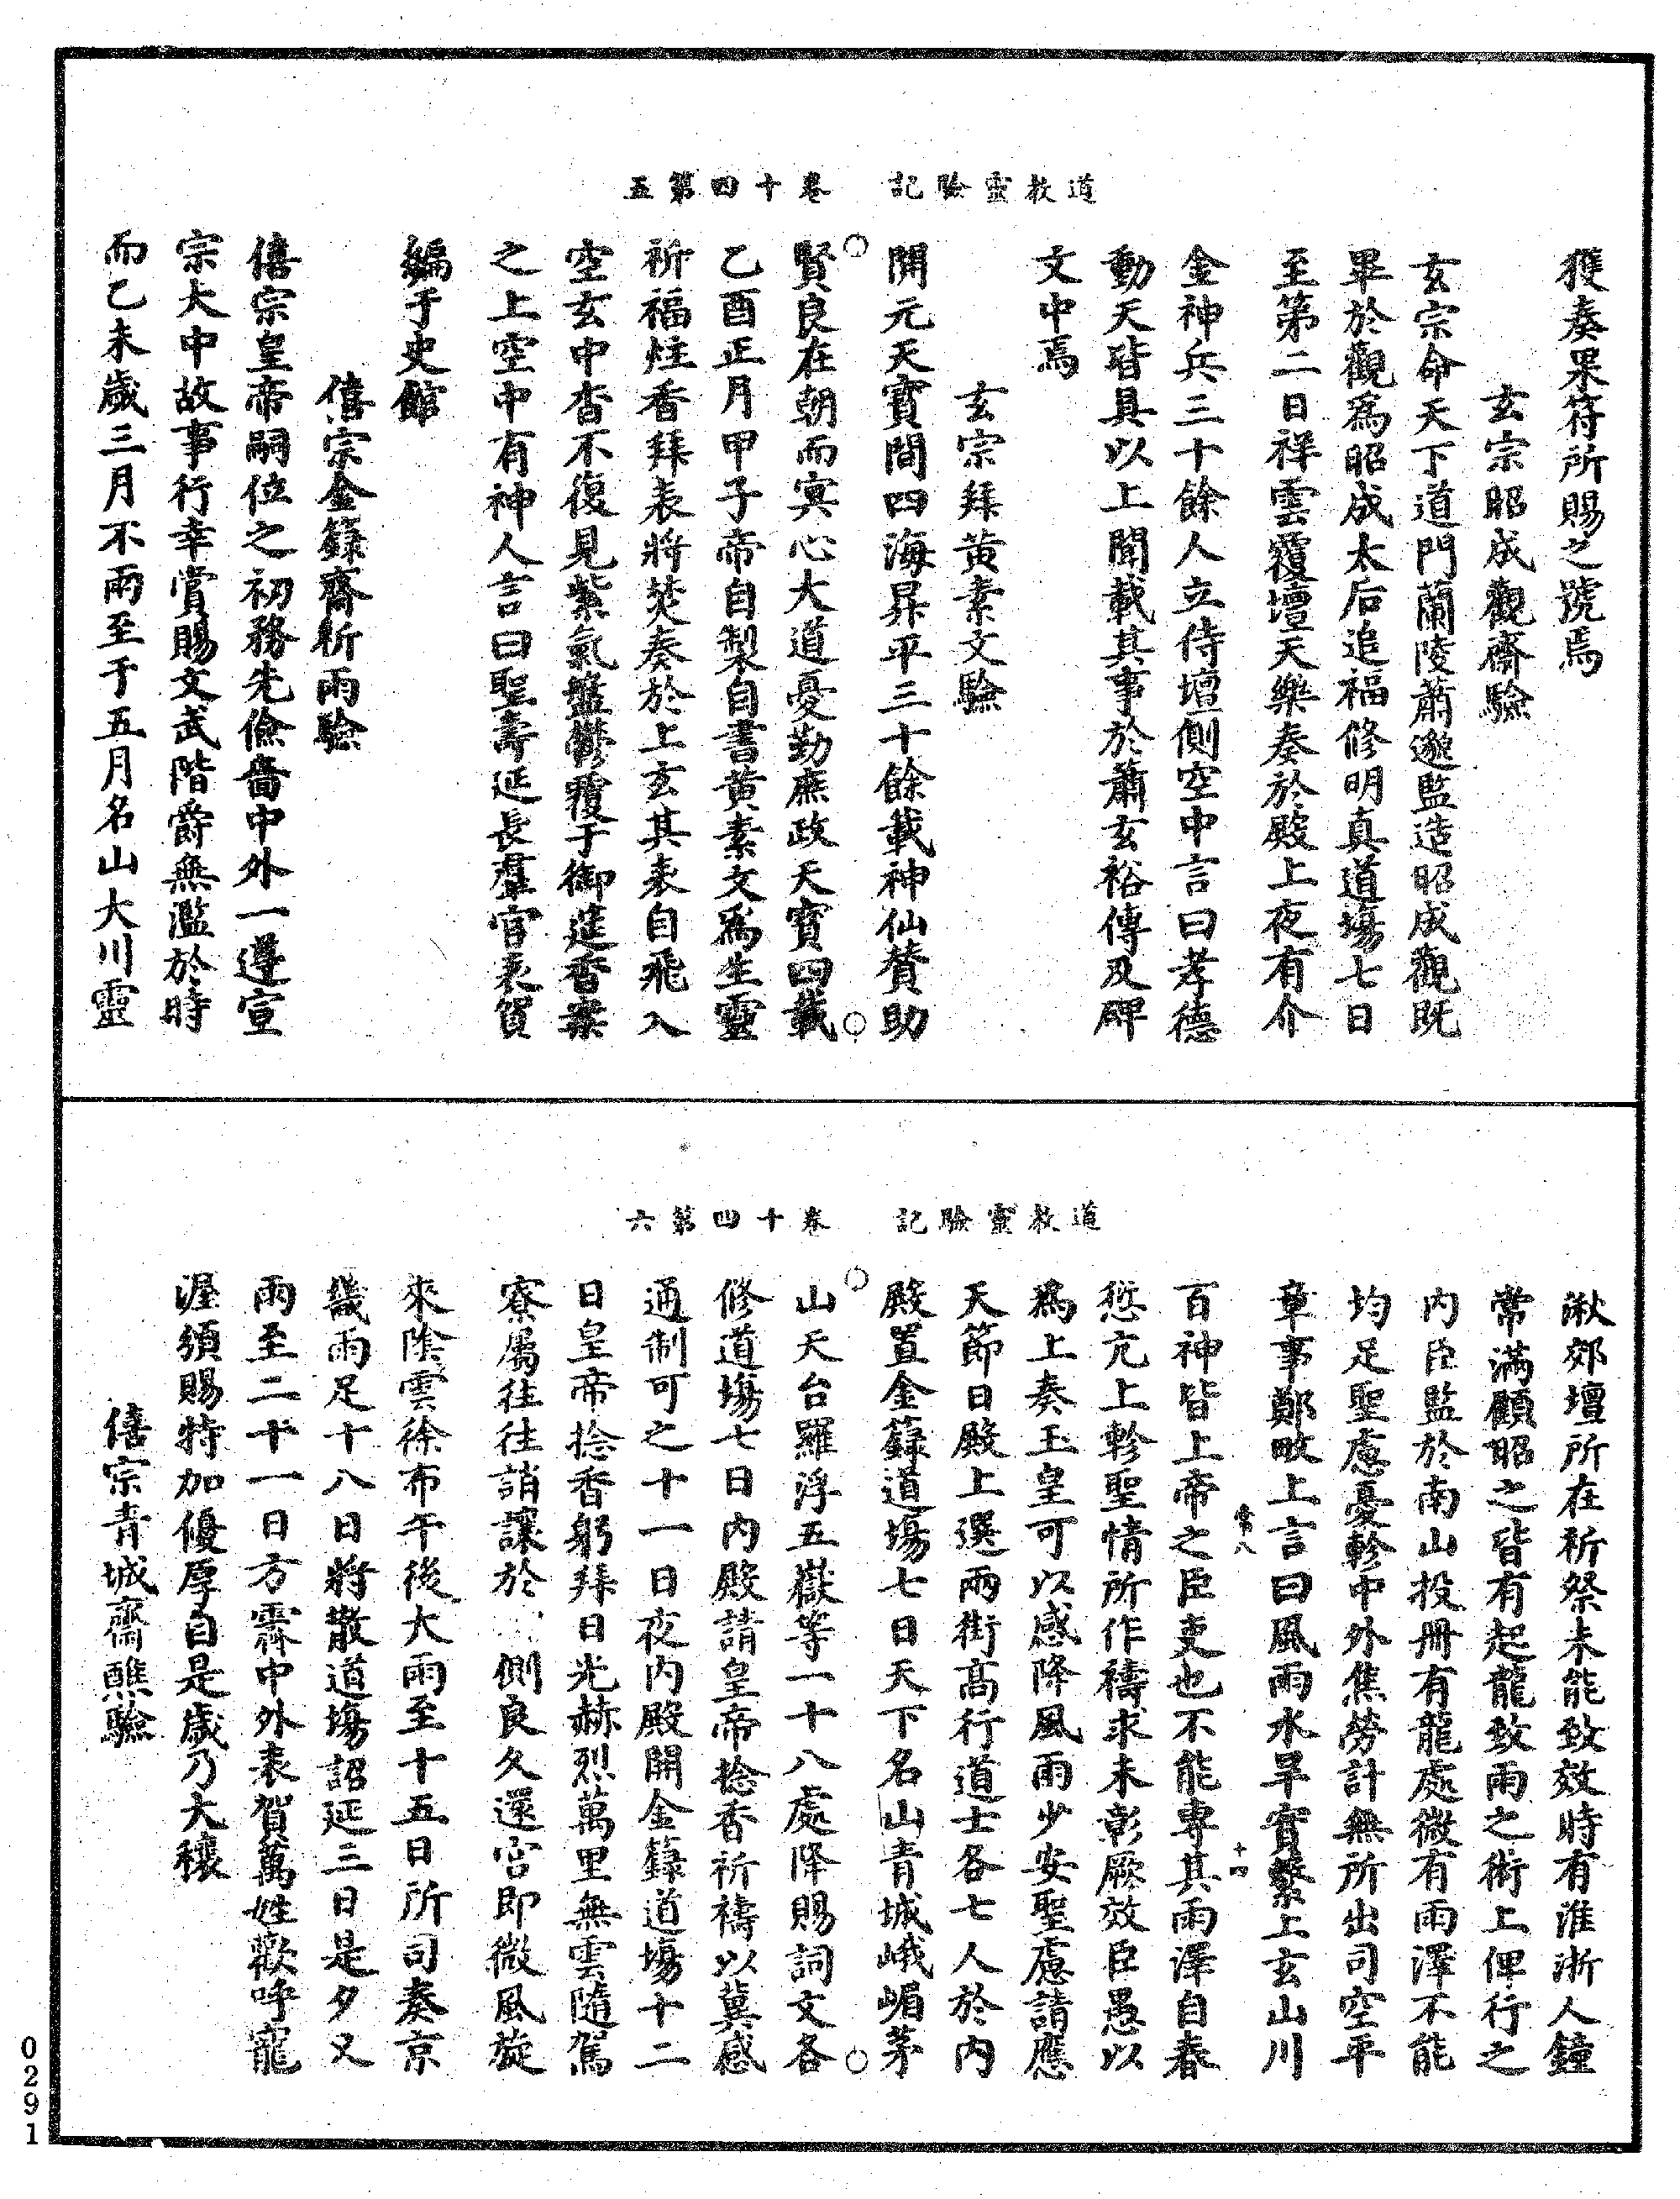 道教靈驗記　卷十四第五
獲奏果符所賜之號焉
玄宗昭成觀齋驗
玄宗命天下道門蘭陵蕭邈監造昭成觀既
畢於觀爲昭成太后追福修明真道場七日
至第二日祥雲覆壇天樂奏於殿上夜有介
金神兵三十餘人立侍壇側空中言曰孝德
動天皆具以上聞載其事於蕭玄裕傳及碑
文中焉
玄宗拜黄素文驗
開元天寳間四海昇平三十餘載神仙贊助
賢良在朝而㝠心大道憂勤庶政天寳四載
乙酉正月甲子帝自製自書黄素文爲生靈
祈福炷香拜表將焚奏於上玄其表自飛入
空玄中杳不復見紫氣盤鬱覆于御筵香案
之上空中有神人言曰聖壽延長羣官表賀
編于史館
僖宗金籙齋祈雨驗
僖宗皇帝嗣位之初務先儉嗇中外一遵宣
宗大中故事行幸賞賜文武階爵無濫於時
而乙未歲三月不雨至于五月名山大川靈
道教靈驗記　卷十四第六
湫郊壇所在祈祭未能致效時有淮浙人鐘
常滿顧昭之皆有起龍致雨之術上俾行之
内臣監於南山投冊有龍處微有雨澤不能
均足聖慮憂軫中外焦勞計無所出司空平
章事鄭畋上言曰風雨水旱實繫上玄山川
常八　十四
百神皆上帝之臣吏也不能專其雨澤自春
愆亢上軫聖情所作禱求未彰厥效臣愚以
爲上奏玉皇可以感降風雨少安聖慮請應
天節日殿上選兩街髙行道士各七人於内
殿置金籙道場七日天下名山青城峨嵋茅
山天台羅浮五嶽等一十八處降賜詞文各
修道場七日内殿請皇帝捻香祈禱以冀感
通制可之十一日夜内殿開金籙道場十二
日皇帝捻香躬拜日光赫烈萬里無雲隨駕
寮屬往往誚讓於　側良久還宮即微風旋
來陰雲徐布午後大雨至十五日所司奏京
畿雨足十八日將散道場詔延三日是夕又
雨至二十一日方霽中外表賀萬姓歡呼寵
渥頒賜特加優厚自是歲乃大穰
僖宗青城齋醮驗
0291